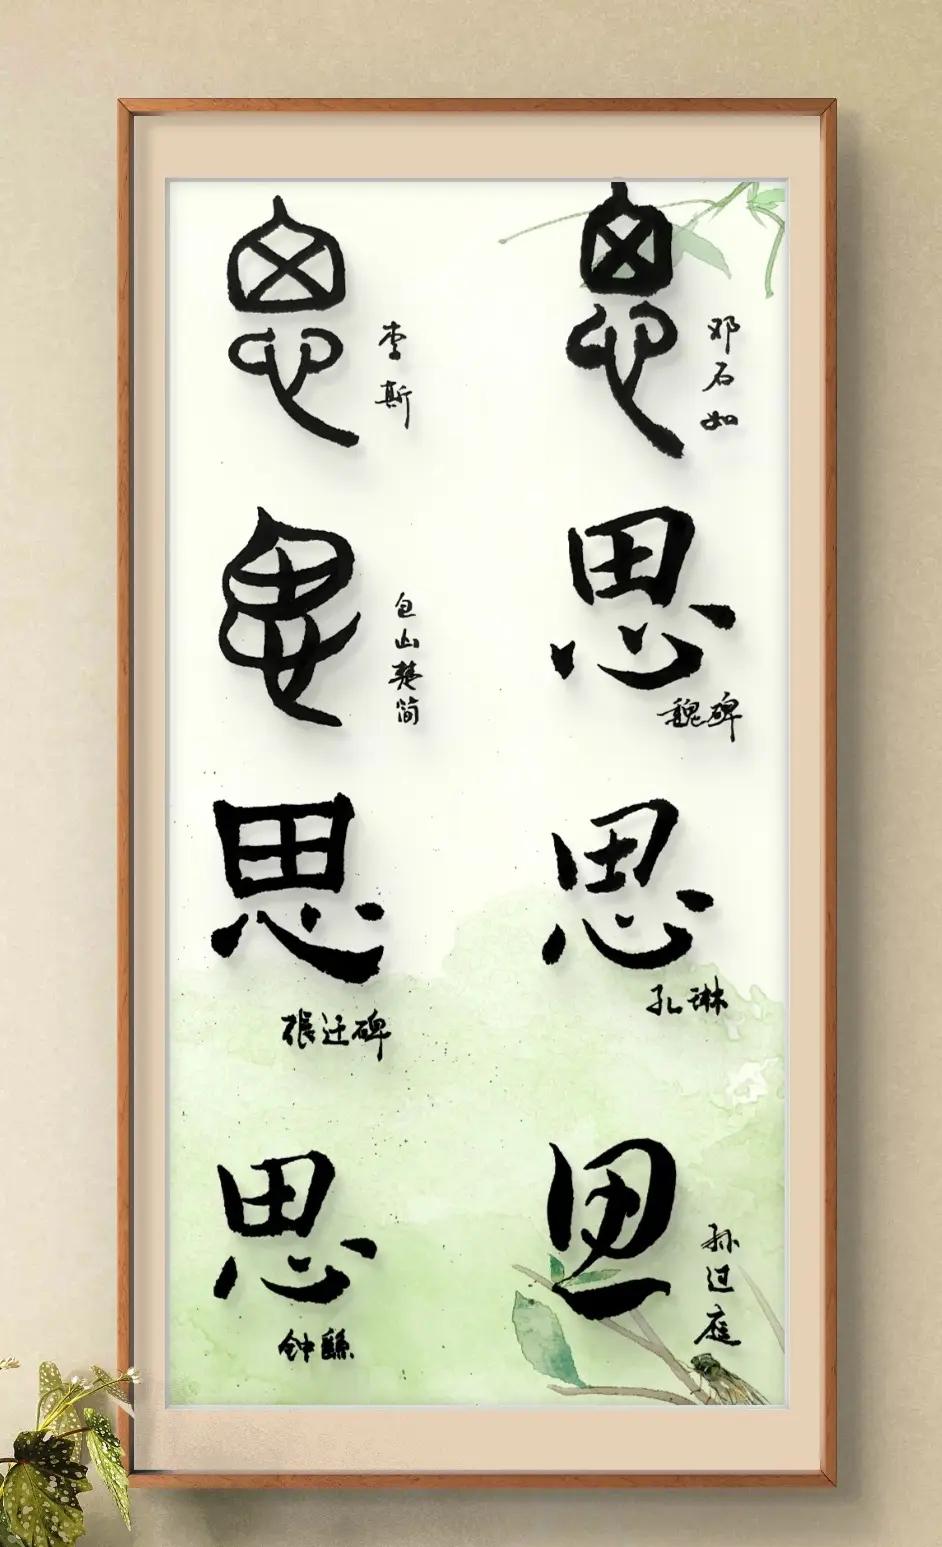 思
李斯
思
邓石如
思
包山楚简
思
魏碑
思
张迁碑
思
孔琳
思
钟繇
思
孙过庭